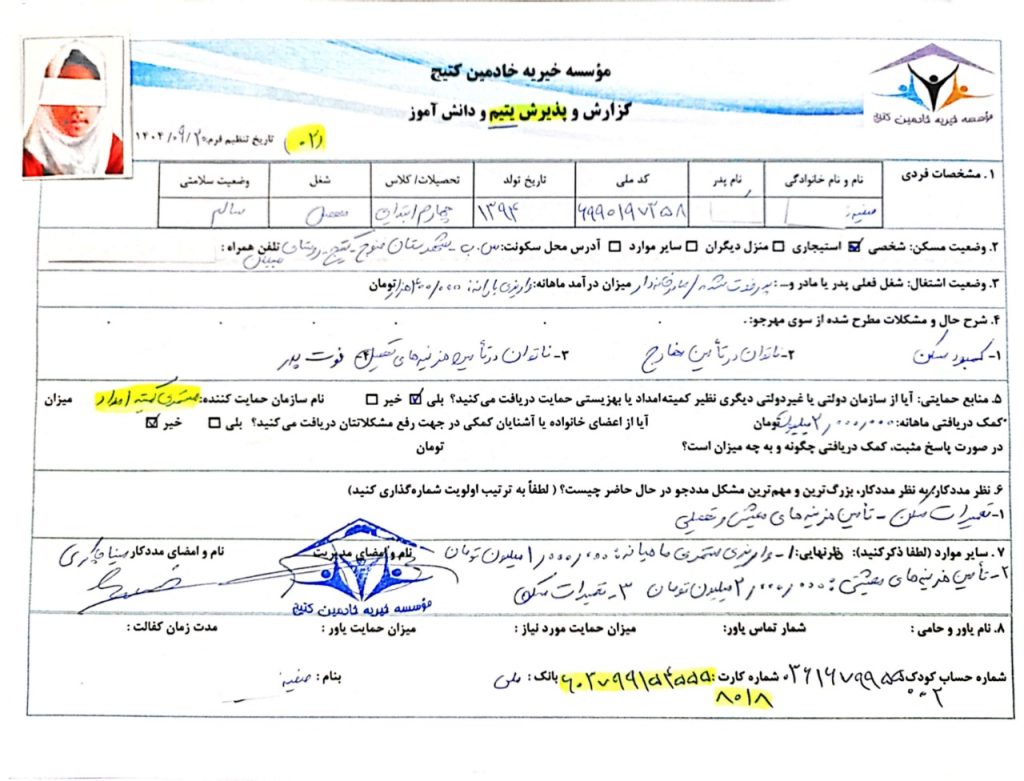 مؤسسه خیریه خادمین کتیج
گزارش و پذیرش یتیم و دانش آموز
مؤسسه خیریه خادمین کتیج
(۰۲) تاریخ تنظیم فرم: ۱۴۰۴/۰۹/۲۰
۱. مشخصات فردی
نام و نام خانوادگی نام پدر کد ملی تاریخ تولد تحصیلات/کلاس شغل وضعیت سلامتی
صفیه ۱۳۹۴ چهارم ابتدایی محصل سالم
۲. وضعیت مسکن: شخصی استیجاری منزل دیگران سایر موارد آدرس محل سکونت: س.ب - شهرستان فنوج - کتیج - روستای تلفن همراه:
۳. وضعیت اشتغال: شغل فعلی پدر یا مادر و...: پدر فوت شده / مادر خانه‌دار میزان درآمد ماهانه: واریزی یارانه: ۴۰۰/۰۰۰ هزار تومان
۴. شرح حال و مشکلات مطرح شده از سوی مهرجو:
۱- کمبود مسکن ۲- ناتوان در تأمین مخارج ۳- ناتوان در تأمین هزینه‌های تحصیل ۴- فوت پدر
۵. منابع حمایتی: آیا از سازمان دولتی یا غیردولتی دیگری نظیر کمیته‌امداد یا بهزیستی حمایت دریافت می‌کنید؟ بلی خیر نام سازمان حمایت کننده: مستمری کمیته امداد میزان
کمک دریافتی ماهانه: ۲/۰۰۰/۰۰۰ میلیون تومان آیا از اعضای خانواده یا آشنایان کمکی در جهت رفع مشکلاتتان دریافت می‌کنید؟ بلی خیر
در صورت پاسخ مثبت، کمک دریافتی چگونه و به چه میزان است؟ تومان
۶. نظر مددکار/ به نظر مددکار، بزرگ‌ترین و مهم‌ترین مشکل مددجو در حال حاضر چیست؟ ( لطفاً به ترتیب اولویت شماره‌گذاری کنید)
۱- تعمیرات مسکن - تأمین هزینه‌های معیشتی و تحصیلی
۷. سایر موارد (لطفا ذکر کنید): نظرنهایی: ۱- واریزی مستمری ماهیانه: ۱/۰۰۰/۰۰۰ میلیون تومان نام و امضای مدیریت نام و امضای مددکار
۲- تأمین هزینه‌های معیشتی: ۲/۰۰۰/۰۰۰ میلیون تومان ۳- تعمیرات مسکن
مؤسسه خیریه خادمین کتیج
۸. نام یاور و حامی: شمار تماس یاور: میزان حمایت مورد نیاز: میزان حمایت یاور: مدت زمان کفالت:
شماره حساب کودک شماره کارت: بانک: ملی بنام: صفیه